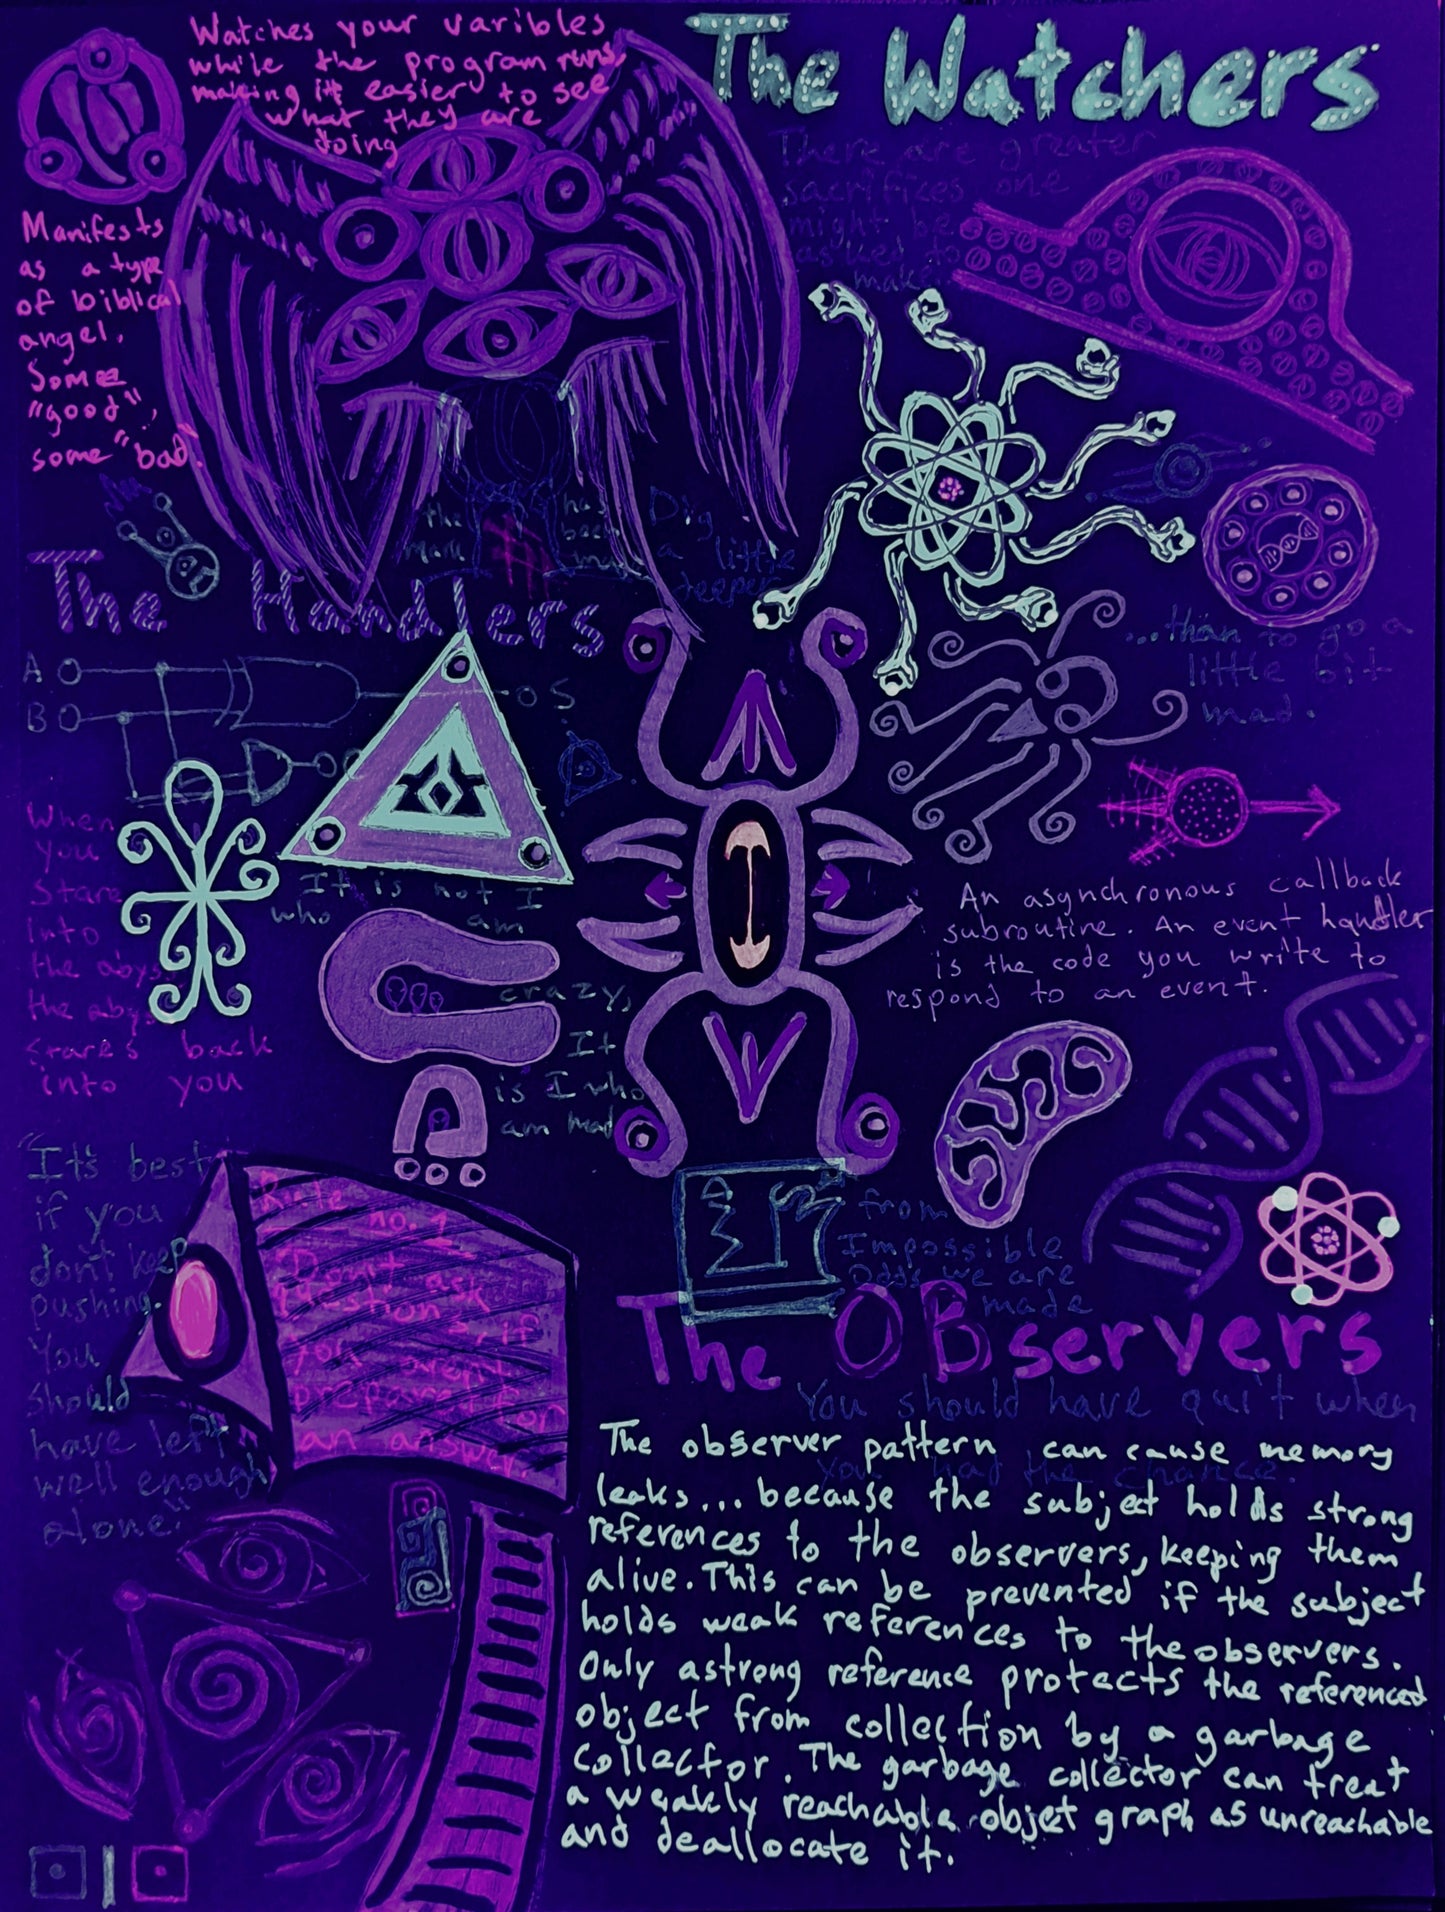 Watches your varibles
while the program runs,
making it easier to see
what they are
doing
The Watchers
There are greater
sacrifices one
might be
asked to
make
Manifests
as a type
of biblical
angel.
Some
"good",
some "bad."
the
mark
has
been
made
Dig
a little
deeper
The Handlers
...than to go a
little bit
mad.
A
B
S
When
you
stare
into
the abyss
the abyss
stares back
into you
It is not I
who am
crazy,
It
is I who
am mad
An asynchronous callback
subroutine. An event handler
is the code you write to
respond to an event.
"It's best
if you
don't keep
pushing.
You
should
have left
well enough
alone."
Rule no. 1
Don't ask
questions, if
you aren't
prepared for
an answer.
from
Impossible
Odds we are
made
The OBservers
You should have quit when
you had the chance.
The observer pattern can cause memory
leaks... because the subject holds strong
references to the observers, keeping them
alive. This can be prevented if the subject
holds weak references to the observers.
Only a strong reference protects the referenced
object from collection by a garbage
collector. The garbage collector can treat
a weakly reachable objet graph as unreachable
and deallocate it.